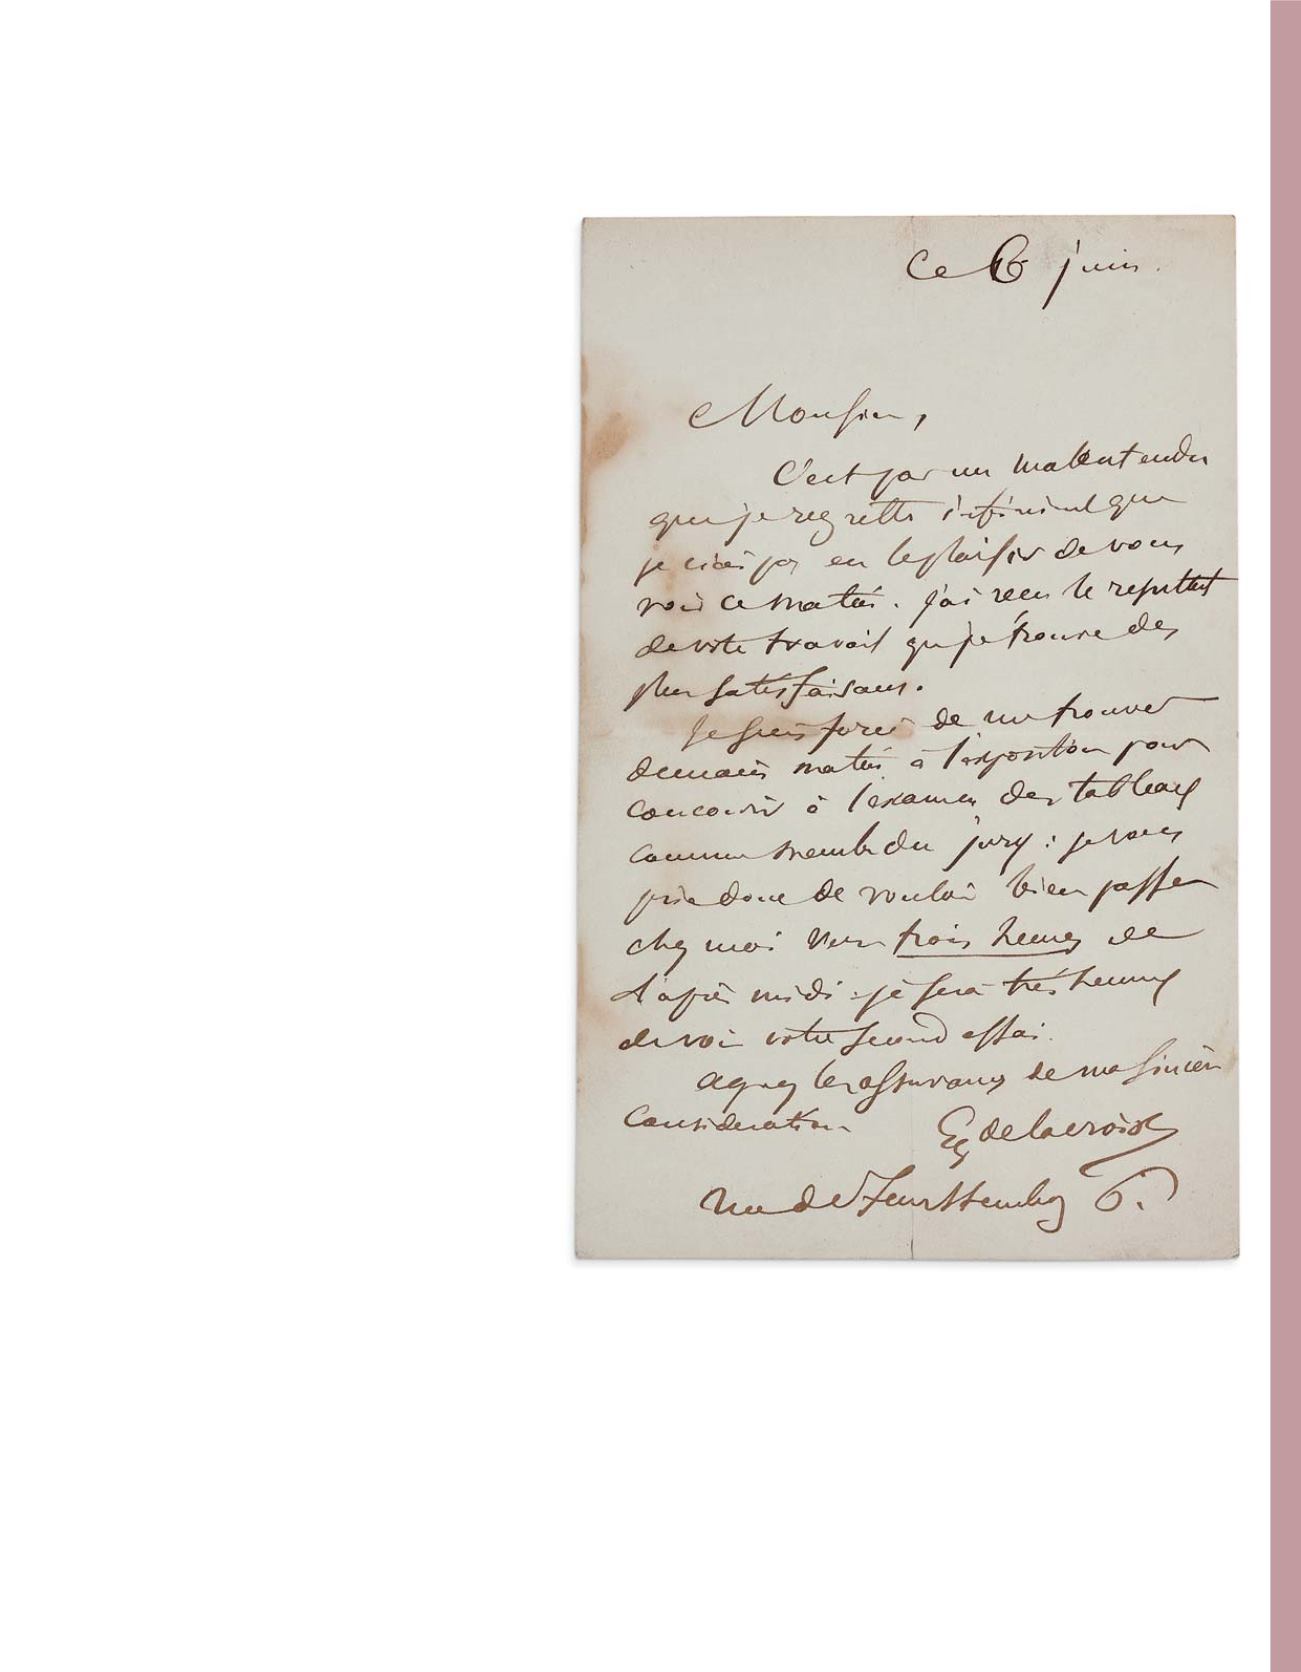 ce 6 juin.
Monsieur,
C'est par un malentendu
que je regrette infiniment que
je n'ai pas eu le plaisir de vous
voir ce matin. j'ai reçu le resultat
de votre travail que je trouve des
plus satisfaisans.
Je suis forcé de me trouver
demain matin à l'exposition pour
concourir à l'examen des tableaux
comme membre du jury : je vous
prie donc de vouloir bien passer
chez moi vers trois heures de
l'après midi : je serai très heureux
de voir votre second essai.
agreez les assurances de ma sincère
consideration
Eug delacroix
rue de Furstemberg 6.